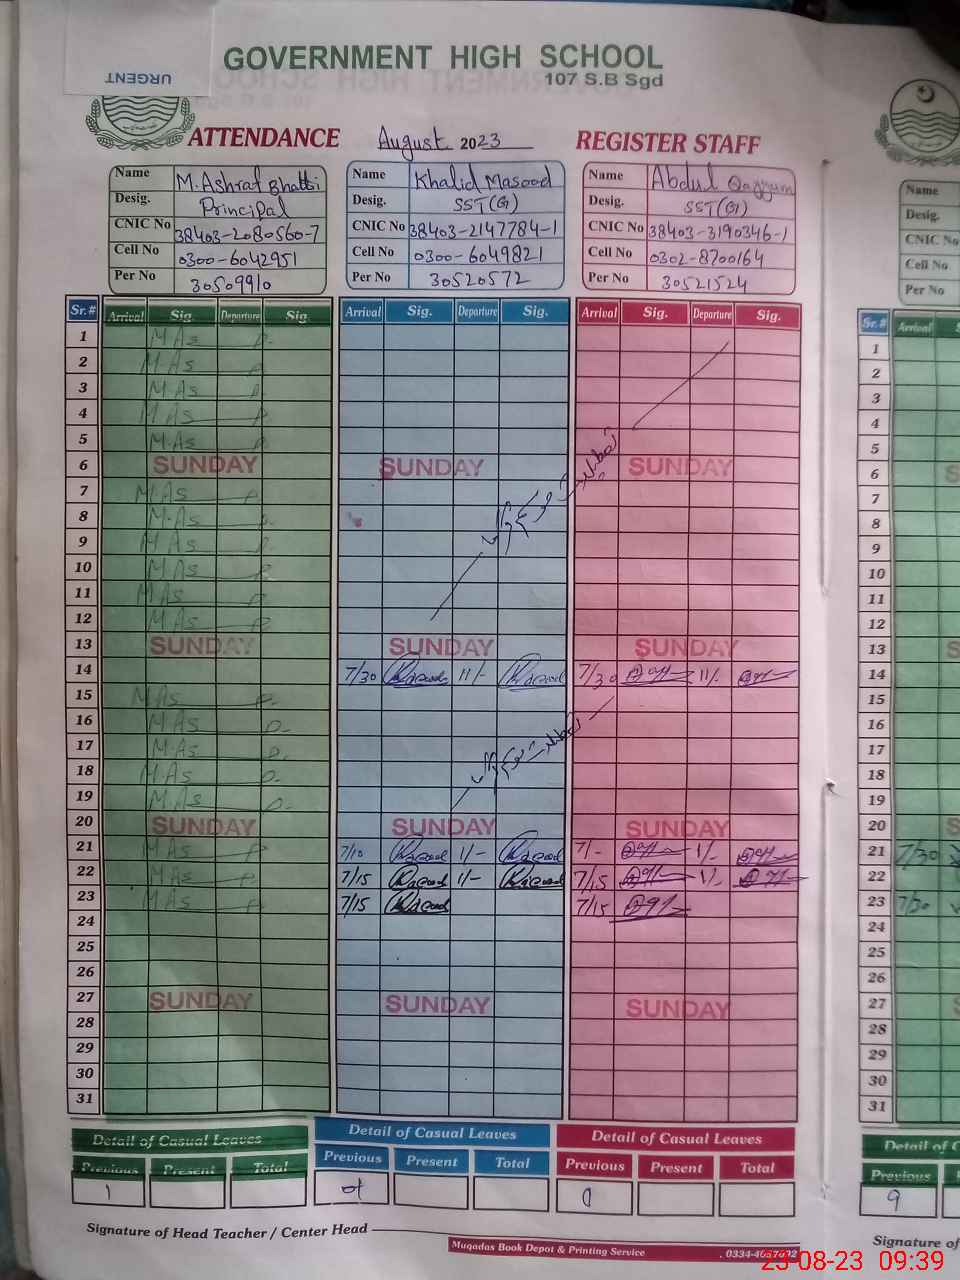 URGENT
GOVERNMENT HIGH SCHOOL
107 S.B Sgd
ATTENDANCE August 2023 REGISTER STAFF
Name M. Ashraf Bhatti
Desig. Principal
CNIC No 38403-2080560-7
Cell No 0300-6042951
Per No 30509910
Name Khalid Masood
Desig. SST(G)
CNIC No 38403-2147784-1
Cell No 0300-6049821
Per No 30520572
Name Abdul Qayyum
Desig. SST(G)
CNIC No 38403-3190346-1
Cell No 0302-8700164
Per No 30521524
Name
Desig.
CNIC No
Cell No
Per No
Sr.# Arrival Sig. Departure Sig. Arrival Sig. Departure Sig. Arrival Sig. Departure Sig. Sr.# Arrival
1 M As P. 1
2 M As P 2
3 M As P. 3
4 M As P 4
5 M.As P. 5
6 SUNDAY SUNDAY SUNDAY 6
7 M.As P 7
8 M.As P. 8
9 M As P. 9
10 M As P 10
11 M As P 11
12 M As P 12
13 SUNDAY SUNDAY SUNDAY 13
14 7/30 11/- 7/30 11/- 14
15 M As P. 15
16 M As P. 16
17 M.As P. 17
18 M As P. 18
19 M As P. 19
20 SUNDAY SUNDAY SUNDAY 20
21 M As P 7/10 1/- 7/- 1/- 21 7/30
22 M As P 7/15 1/- 7/15 1/- 22
23 M As P 7/15 7/15 23 7/30
24 24
25 25
26 26
27 SUNDAY SUNDAY SUNDAY 27
28 28
29 29
30 30
31 31
Detail of Casual Leaves Detail of Casual Leaves Detail of Casual Leaves Detail of C
Previous Present Total Previous Present Total Previous Present Total Previous
1 0 9
Signature of Head Teacher / Center Head Signature of
Muqadas Book Depot & Printing Service
23-08-23 09:39